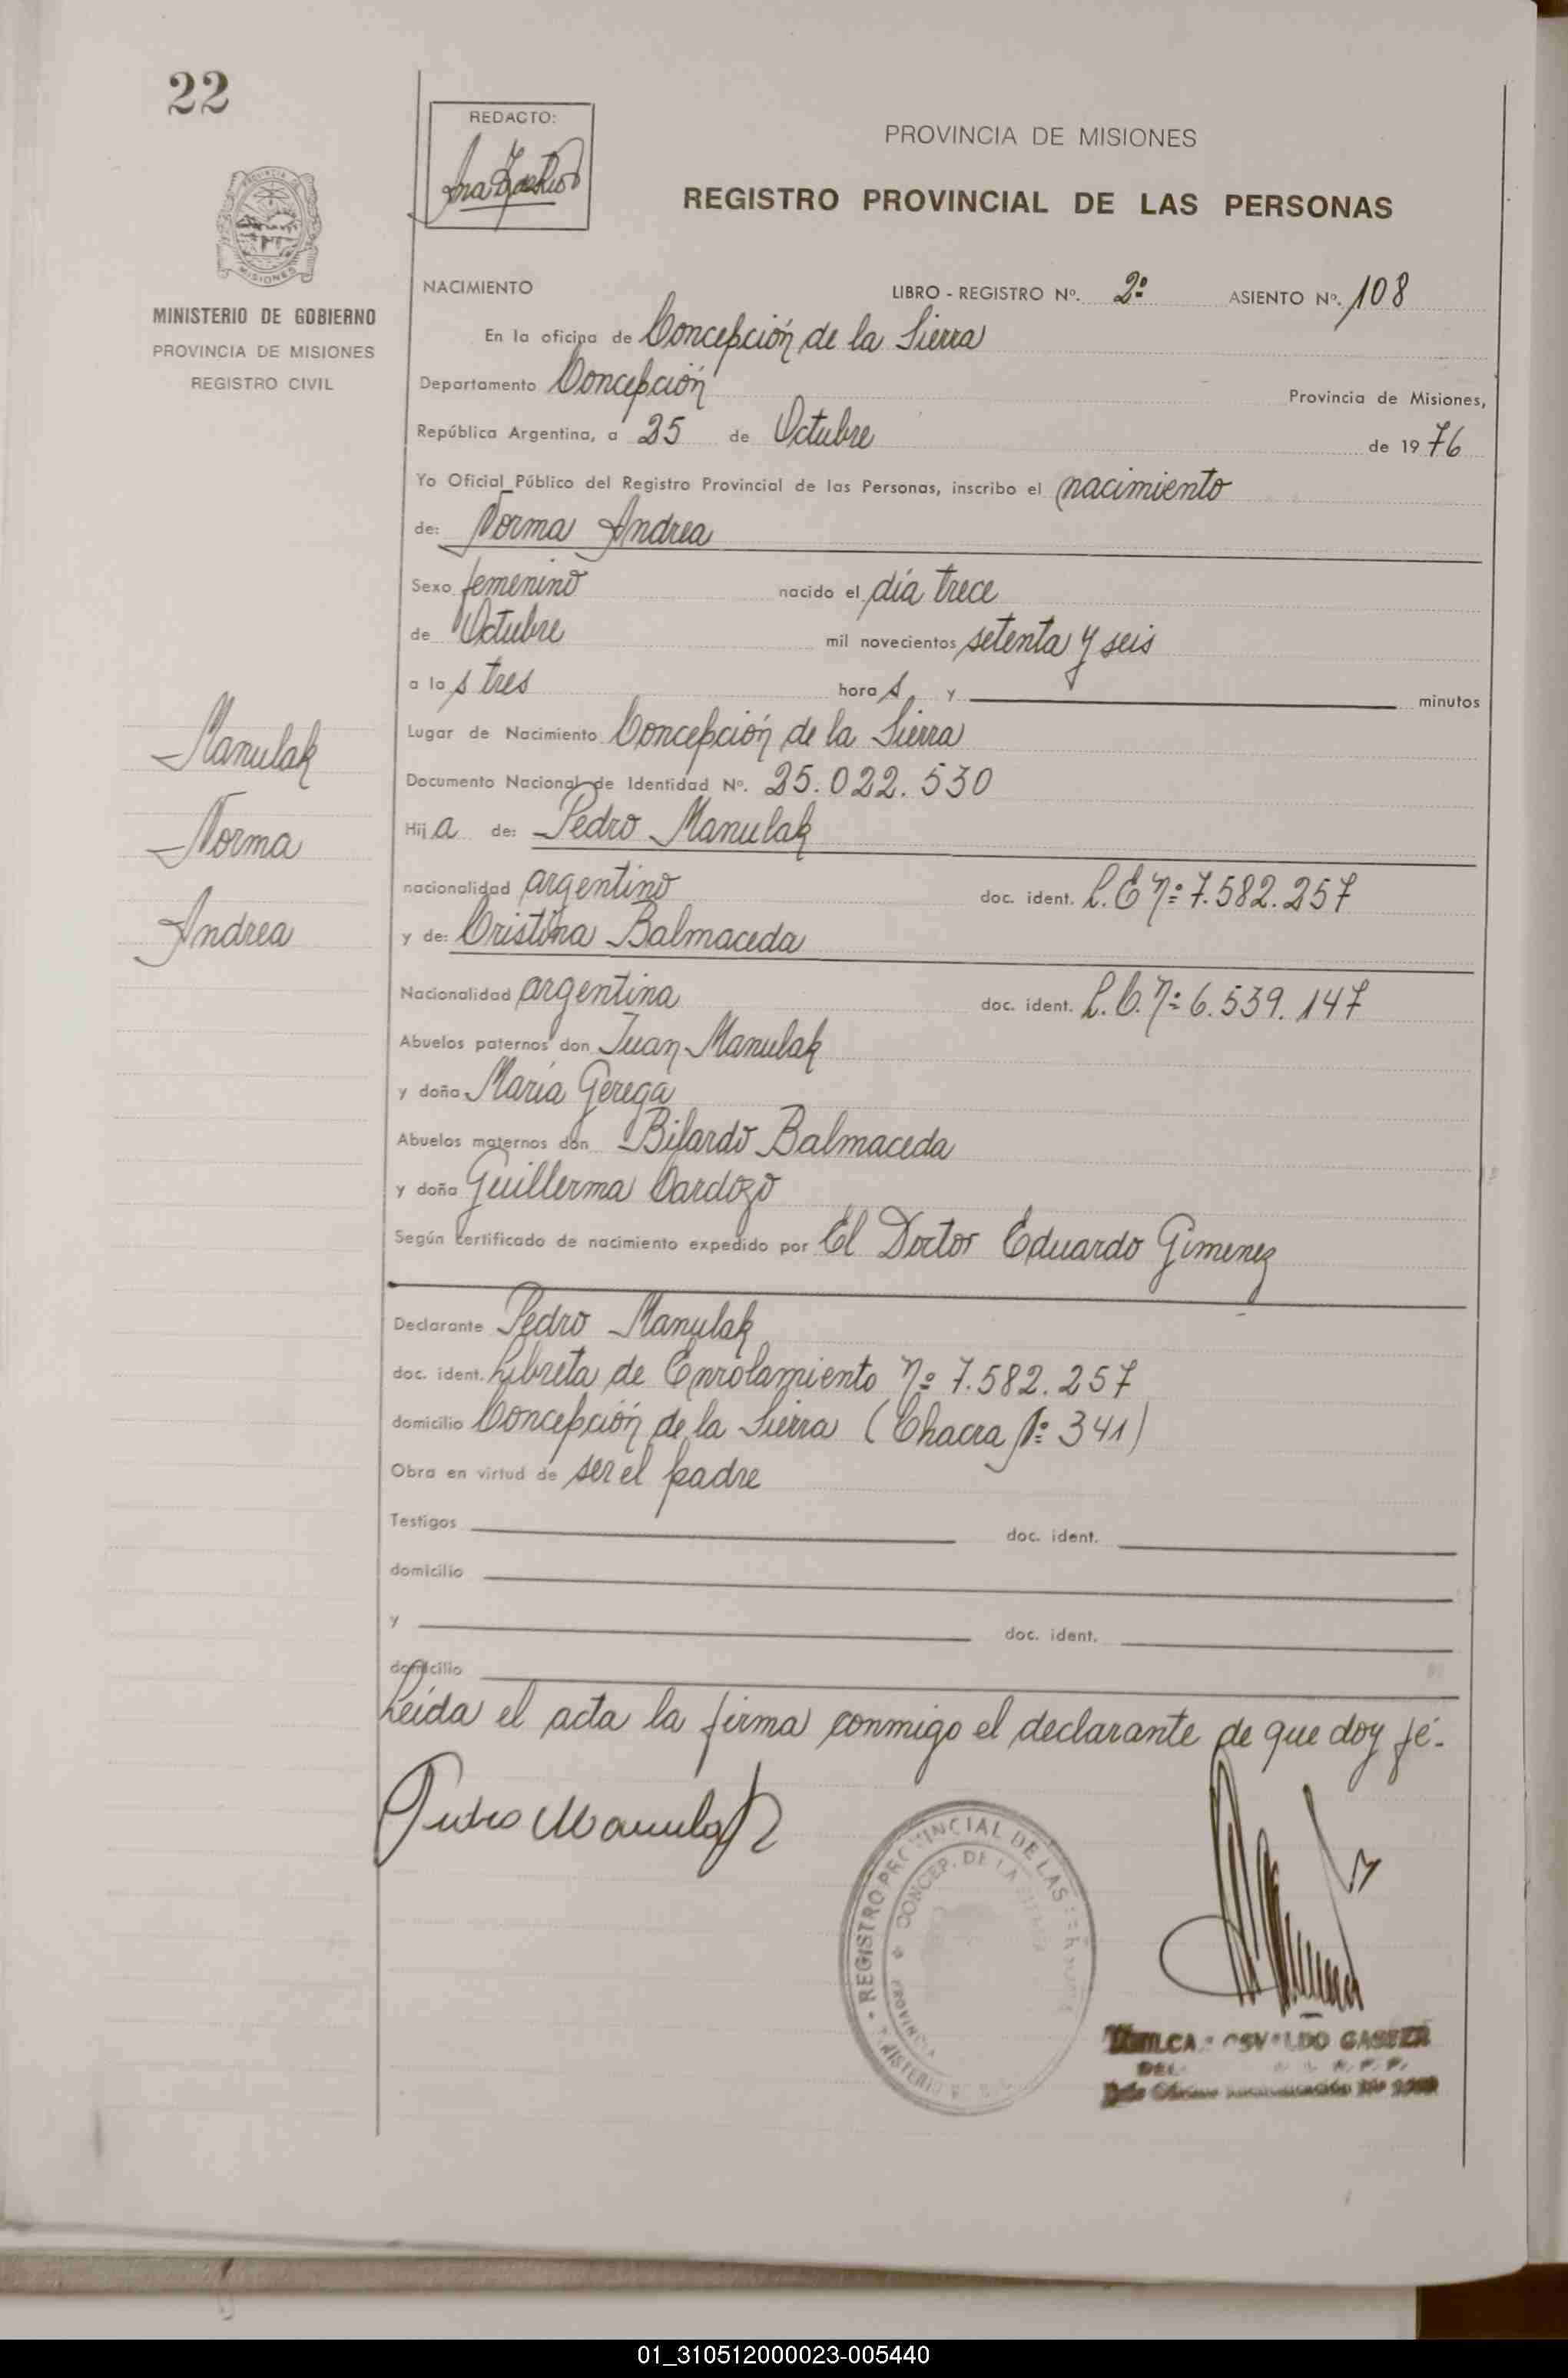 22
REDACTO:
PROVINCIA DE MISIONES
REGISTRO PROVINCIAL DE LAS PERSONAS
PROVINCIA DE
MISIONES
MINISTERIO DE GOBIERNO
PROVINCIA DE MISIONES
REGISTRO CIVIL
NACIMIENTO LIBRO - REGISTRO Nº. 2º ASIENTO Nº. 108
En la oficina de Concepción de la Sierra
Departamento Concepción Provincia de Misiones,
República Argentina, a 25 de Octubre de 1976
Yo Oficial Público del Registro Provincial de las Personas, inscribo el nacimiento
de: Norma Andrea
Sexo femenino nacido el día trece
de Octubre mil novecientos setenta y seis
a las tres horas y minutos
Lugar de Nacimiento Concepción de la Sierra
Documento Nacional de Identidad Nº. 25.022.530
Hija de: Pedro Manulak
nacionalidad argentino doc. ident. L.E nº 7.582.257
y de: Cristina Balmaceda
Nacionalidad argentina doc. ident. L.C. nº 6.539.147
Abuelos paternos don Juan Manulak
y doña María Gerega
Abuelos maternos don Bifardo Balmaceda
y doña Guillerma Cardozo
Según certificado de nacimiento expedido por El Doctor Eduardo Gimenez
Declarante Pedro Manulak
doc. ident. Libreta de Enrolamiento nº 7.582.257
domicilio Concepción de la Sierra (Chacra Nº 341)
Obra en virtud de ser el padre
Testigos doc. ident.
domicilio
y doc. ident.
domicilio
Manulak
Norma
Andrea
Leída el acta la firma conmigo el declarante de que doy fé.
Pedro Manulak
REGISTRO PROVINCIAL DE LAS
CONCEP. DE LA
PROVINCIA
OSVALDO
01_310512000023-005440